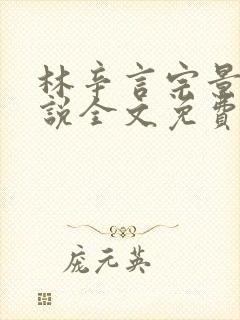 林辛言宗景
說全文免費
庞元英